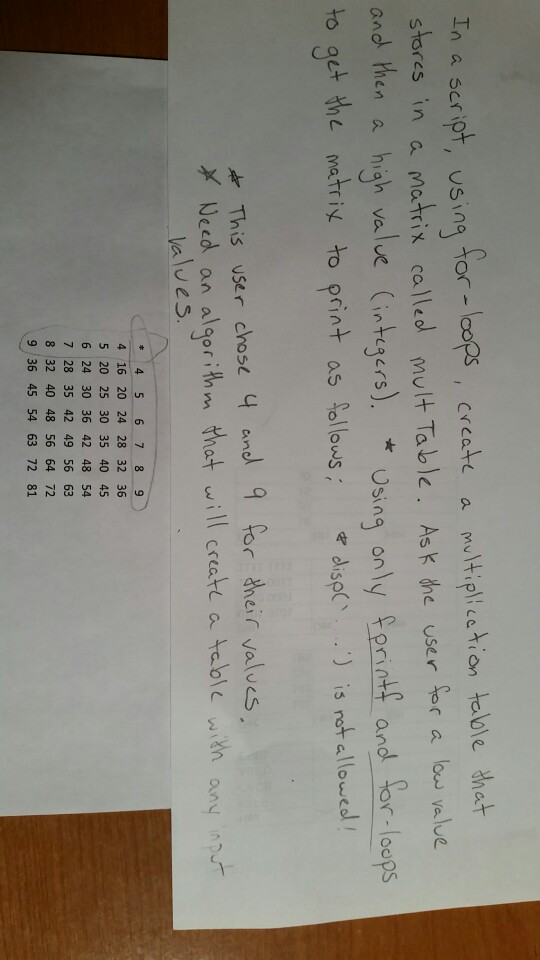 In a script, using for-loops, create a multiplication table that
stores in a matrix called multTable. Ask the user for a low value
and then a high value (integers). * Using only fprintf and for-loops
to get the matrix to print as follows: * disp('...') is not allowed!
* This user chose 4 and 9 for their values.
* Need an algorithm that will create a table with any input
values.
* 4 5 6 7 8 9
4 16 20 24 28 32 36
5 20 25 30 35 40 45
6 24 30 36 42 48 54
7 28 35 42 49 56 63
8 32 40 48 56 64 72
9 36 45 54 63 72 81